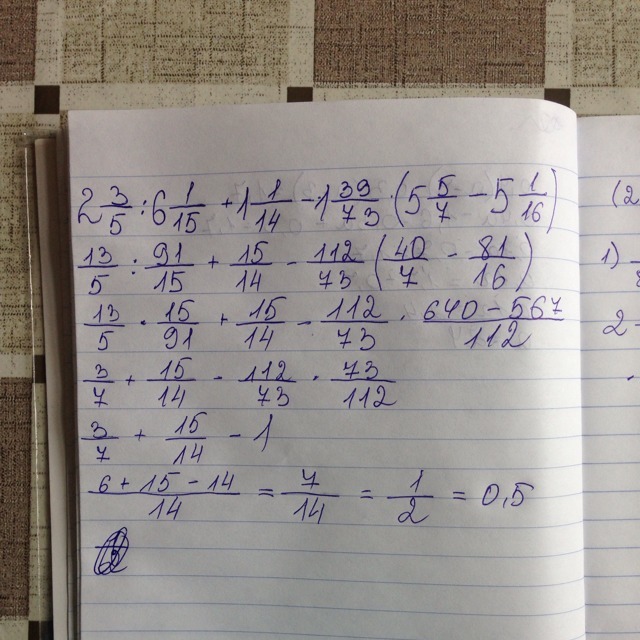 2 3/5 : 6 1/15 + 1 1/14 - 1 39/73 · (5 5/7 - 5 1/16)
13/5 : 91/15 + 15/14 - 112/73 (40/7 - 81/16)
13/5 · 15/91 + 15/14 - 112/73 · 640-567/112
3/7 + 15/14 - 112/73 · 73/112
3/7 + 15/14 - 1
6+15-14/14 = 7/14 = 1/2 = 0,5
(2
1)
2